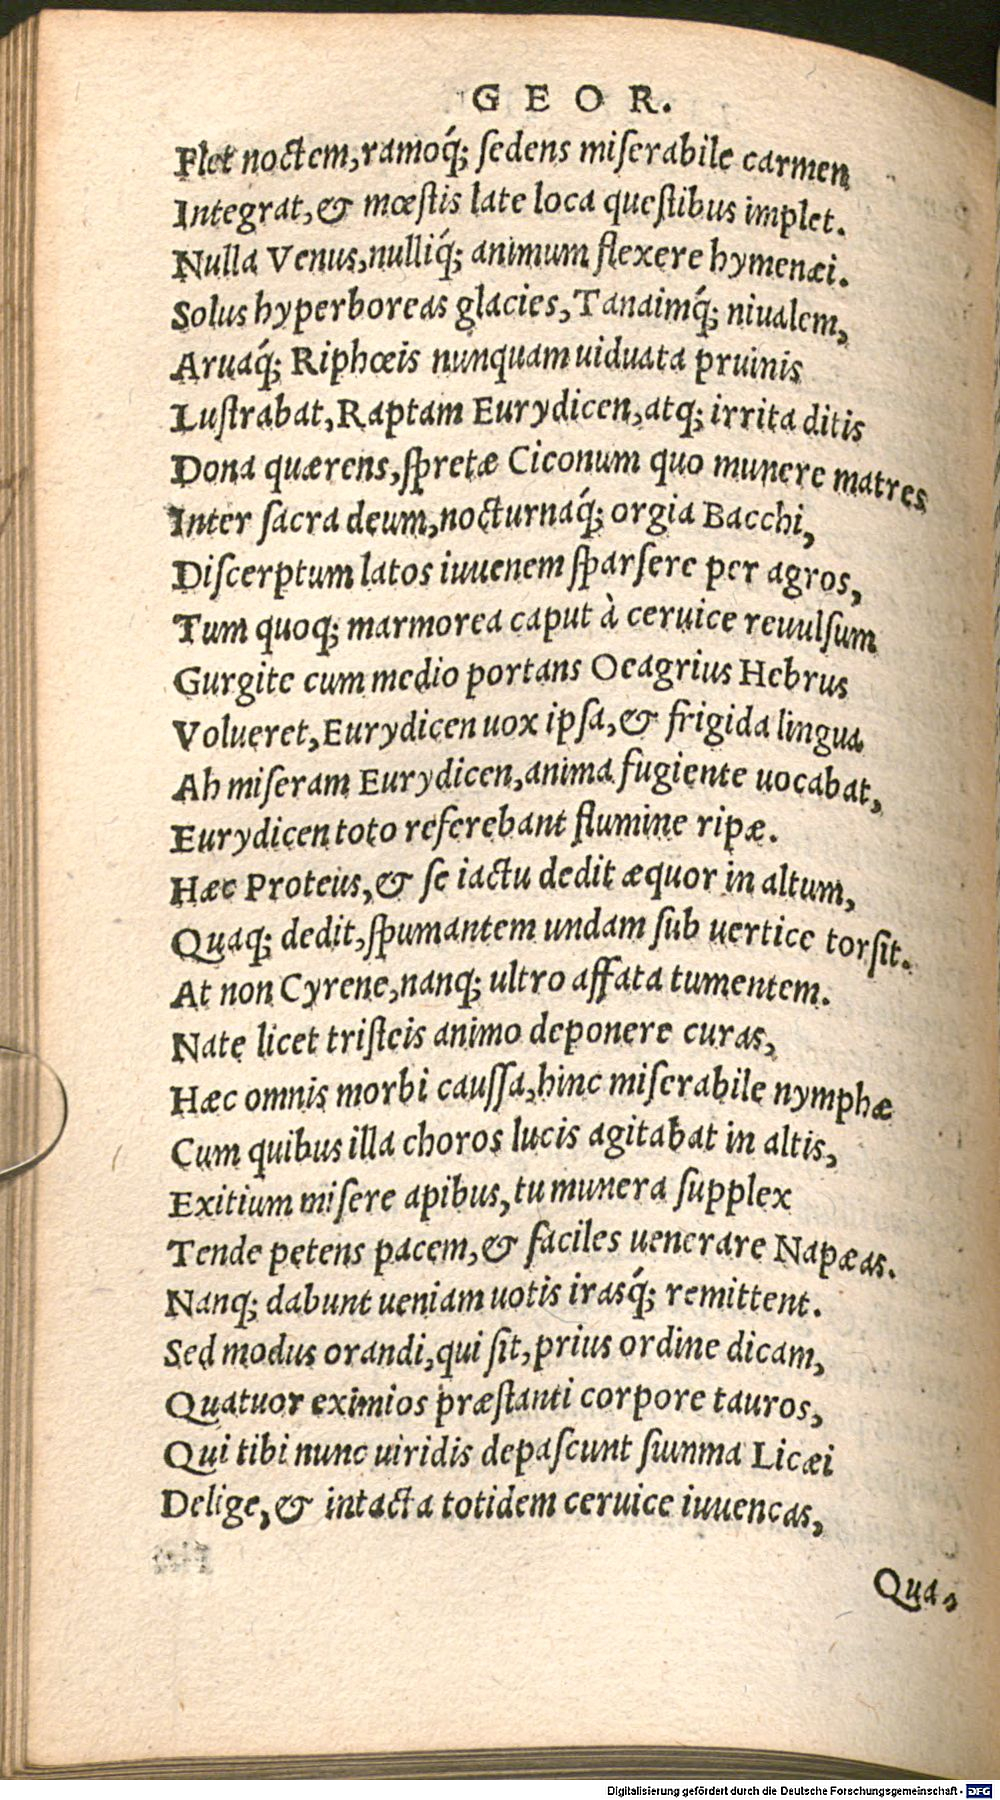 GEOR.
Flet noctem, ramoq́; sedens miserabile carmen
Integrat, & mœstis late loca questibus implet.
Nulla Venus, nulliq́; animum flexere hymenæi.
Solus hyperboreas glacies, Tanaimq́; niualem,
Aruaq́; Riphœis nunquam uiduata pruinis
Lustrabat, Raptam Eurydicen, atq; irrita ditis
Dona quærens, spretæ Ciconum quo munere matres
Inter sacra deum, nocturnaq́; orgia Bacchi,
Discerptum latos iuuenem sparsere per agros,
Tum quoq; marmorea caput à ceruice reuulsum
Gurgite cum medio portans Oeagrius Hebrus
Volueret, Eurydicen uox ipsa, & frigida lingua
Ah miseram Eurydicen, anima fugiente uocabat,
Eurydicen toto referebant flumine ripæ.
Hæc Proteus, & se iactu dedit æquor in altum,
Quaq; dedit, spumantem undam sub uertice torsit.
At non Cyrene, nanq; ultro affata tumentem.
Nate licet tristeis animo deponere curas,
Hæc omnis morbi caussa, hinc miserabile nymphæ
Cum quibus illa choros lucis agitabat in altis,
Exitium misere apibus, tu munera supplex
Tende petens pacem, & faciles uenerare Napæas.
Nanq; dabunt ueniam uotis irasq́; remittent.
Sed modus orandi, qui sit, prius ordine dicam,
Quatuor eximios præstanti corpore tauros,
Qui tibi nunc uiridis depascunt summa Licæi
Delige, & intacta totidem ceruice iuuencas,
Qua,
Digitalisierung gefördert durch die Deutsche Forschungsgemeinschaft - DFG